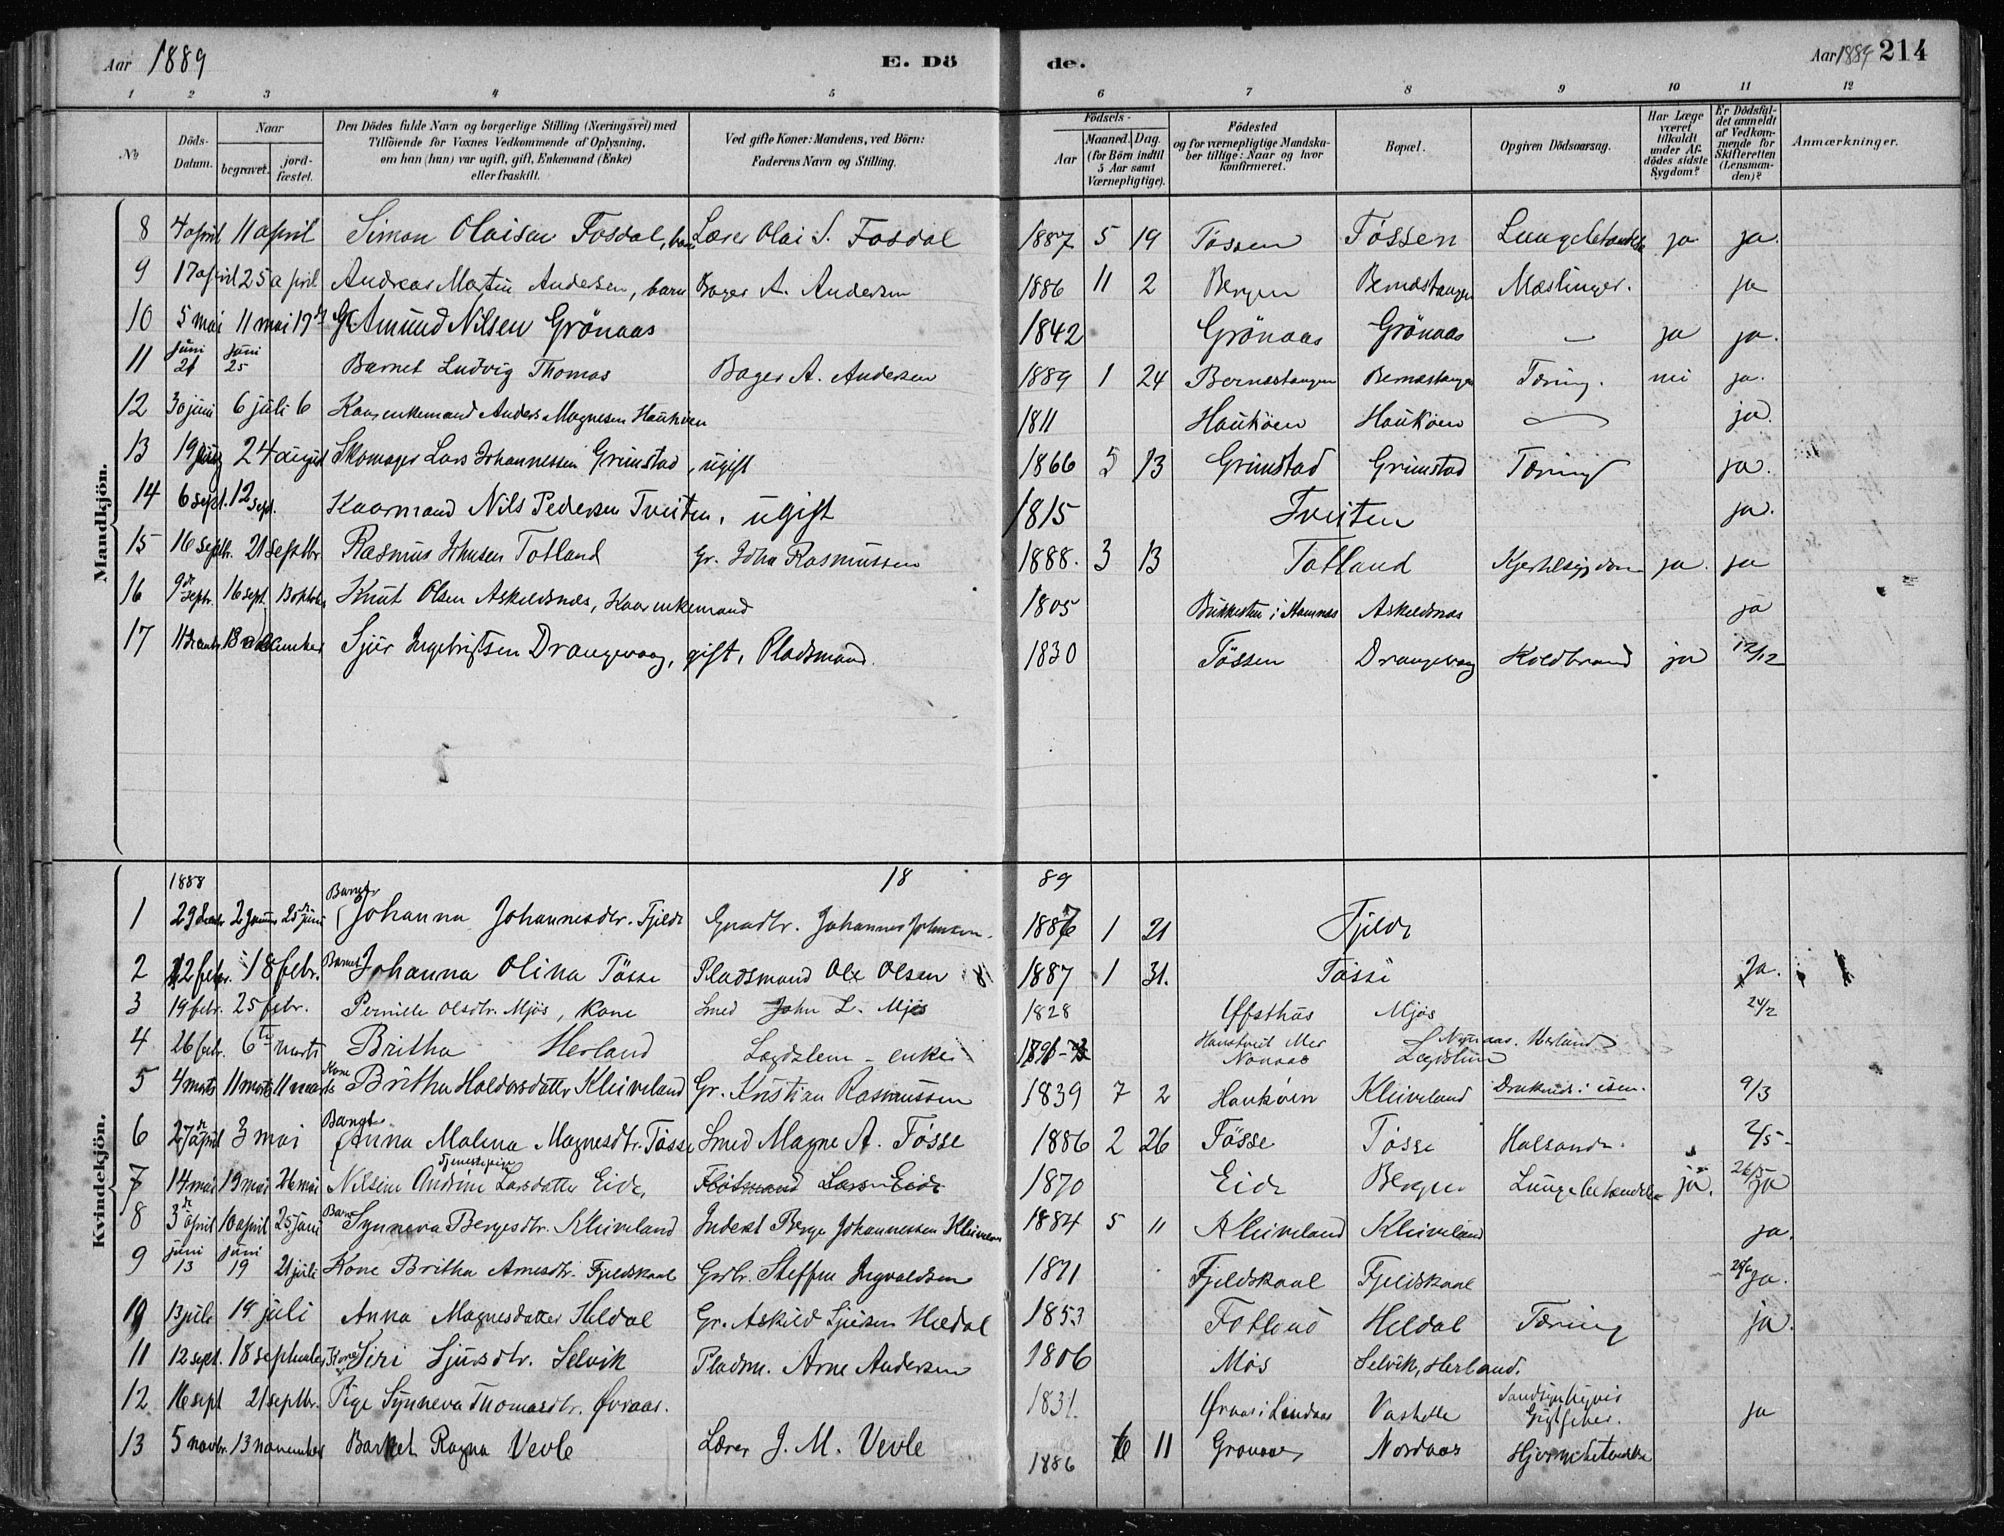 Aar 1889 E. Dö de. Aar 1889 214
1 2 3 4 5 6 7 8 9 10 11 12
No
Döds-Datum.
Naar
begravet.
jord-fæstet.
Den Dödes fulde Navn og borgerlige Stilling (Næringsvei) med
Tilföiende for Voxnes Vedkommende af Oplysning,
om han (hun) var ugift, gift, Enkemand (Enke)
eller fraskilt.
Ved gifte Koner: Mandens, ved Börn:
Faderens Navn og Stilling.
Födsels-
Aar
Maaned. Dag.
(for Börn indtil
5 Aar samt
Værnepligtige).
Födested
og for værnepligtige Mandska-
ber tillige: Naar og hvor
konfirmeret.
Bopæl.
Opgiven Dödsaarsag.
Har Læge
været
tilkaldt
under Af-
dödes sidste
Sygdom?
Er Dödsfal-
det anmeldt
af Vedkom-
mende for
Skifteretten
(Lensman-
den)?
Anmærkninger.
Mandkjön.
8 4 april 11 april Simon Olaisen Fosdal, barn Lærer Olai S. Fosdal 1887 5 19 Tössen Tössen ja ja.
9 17 april 25 april Andreas Martin Andersen, barn Bager A. Andersen 1886 11 2 Bergen Bernestangen Mæslinger. ja
10 5 mai 11 mai 19 Amund Nilsen Grönaas 1842 Grönaas Grönaas — ja ja.
11 juni 21 juni 25 Barnet Ludvig Thomas Bager A. Andersen 1889 1 24 Bernestangen Bernestangen Tæring. nei ja.
12 30 juni 6 juli 6 Kaarenkemand Anders Magnesen Hauköen 1811 Hauköen Hauköen — ja.
13 19 aug 24 august Skomager Lars Johannessen Grimstad, ugift 1866 5 13 Grimstad Grimstad Tæring ja.
14 6 sept. 12 sept. Kaarmand Nils Pedersen Tveiten, ugift 1815 Tveiten ja.
15 16 septbr. 21 septbr Rasmus Johnsen Totland Gr. John Rasmussen 1888. 3 13 Totland Kjertelsygdom ja. ja
16 9de septr. 16 sept. 13 oktober Knut Olsen Askeldsnes, Kaarenkemand 1805 i Hamnes Askeldsnes ja
17 11 decembr. 18 december Sjur Ingebrigtsen Drangevaag, gift, Pladsmand. 1830 Tössen Drangevaag Koldbrand ja 12/12
Kvindekjön.
1888 18 89
1 29 decbr 2 januar 25 juni Barnet Johanna Johannesdtr. Fjeld Gaardbr. Johannes Johnsen. 1887 1 21 Fjeld
2 12 febr. 18 febr. Barnet Johanna Olina Tösse Pladsmand Ole Olsen 1887 1 31. Tösse Ja.
3 19 febr. 25 febr. Pernille Olsdtr. Mjös, kone Smed John L. Mjös 1828 Øfsthus Mjös 24/2
4 26 febr. 6te marts Britha Herland Lægdslem - enke Lægdslem
5 4 marts 11 marts 11 marts Kone Britha Haldorsdatter Kleiveland Gr. Kristian Rasmussen 1839 7 2 Hauköen Kleiveland Druknede i isen. 9/3
6 27de april 3 mai Barnet Anna Malena Magnesdtr. Tösse Smed Magne A. Tösse 1886 2 26 Tösse Tösse Halsonde. 2/5
7 14 mai 19 mai 26 mai Nilsine Andrine Larsdatter Eide, Tjenestepige Lars Eide 1870 Eide Bergen ja. 26/5 ja
8 3de april 10 april 25 juni Barn Synneva Bergesdtr. Kleiveland Inderst Berge Johannessen Kleiveland 1884 5 11 Kleiveland Kleiveland ja.
9 juni 13 juni 19 21 juli Kone Britha Arnesdtr. Fjeldskaal Grdbr. Steffen Ingvaldsen Fjeldskaal Fjeldskaal ja.
10 13 juli 19 juli Anna Magnesdatter Heldal Gr. Askild Sjursen Heldal 1853 Totland Heldal Tæring ja.
11 12 sept. 18 september Kone Siri Sjursdtr. Selvik Pladsm. Arne Andersen 1806 Mös Selvik, Herland.
12 16 sept 21 septbr. Pige Synneva Thomasdtr. Øvraas. 1831. Øvraas i Lindaas Gigtfeber. ja
13 5 novbr. 13 november Barnet Ragna Vevle Lærer J. M. Vevle 1886 6 11 Grönaas Nordaas